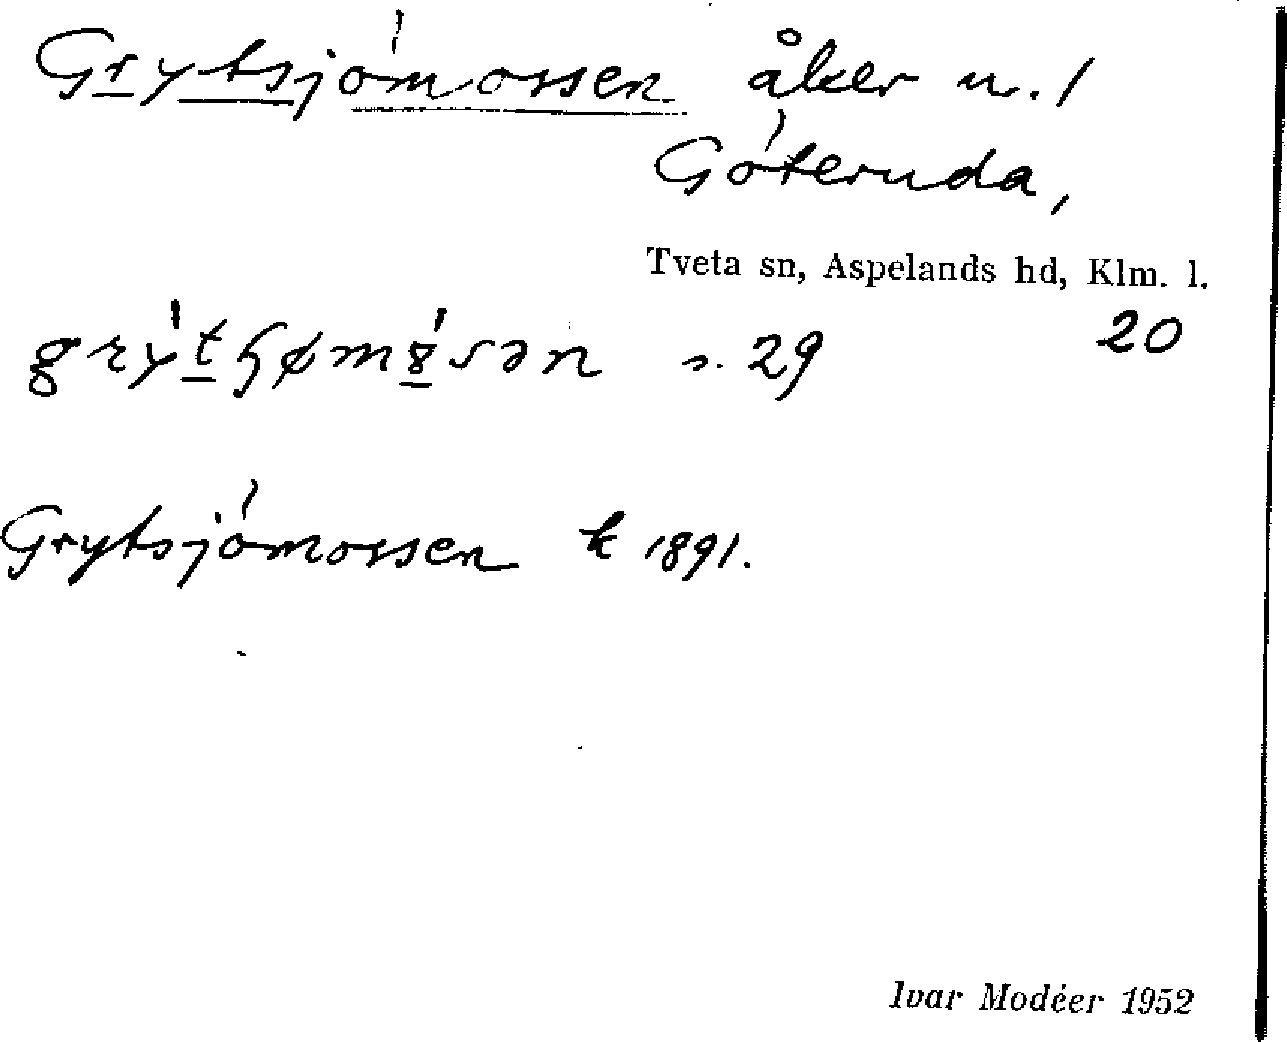 Grytsjömossen åker n. 1
Göteruda,
Tveta sn, Aspelands hd, Klm. l.
20
s. 29
Grytsjömossen k 1891.
Ivar Modéer 1952